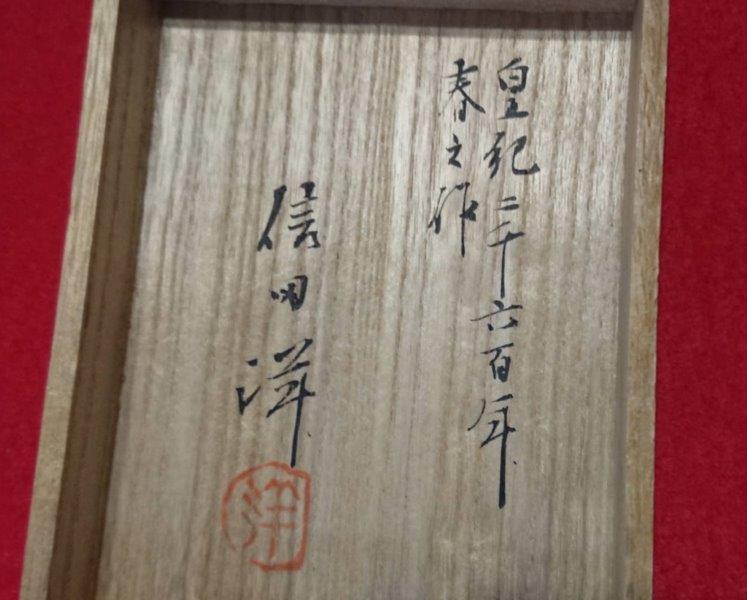 皇紀二千六百年
春之作
信田洋
洋